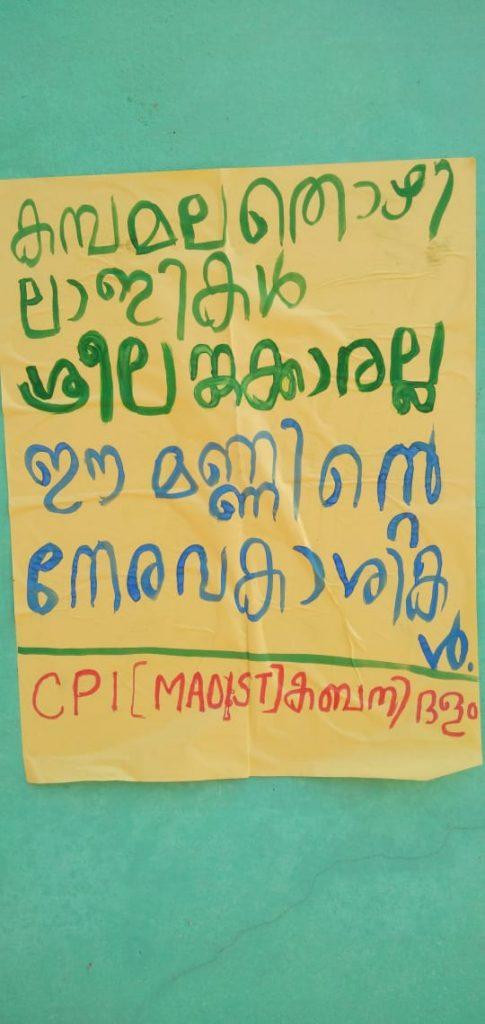 കമ്പമല തൊഴി
ലാളികൾ
ശ്രീലങ്കക്കാരല്ല
ഈ മണ്ണിന്റെ
നേരവകാശിക
ൾ.
CPI [MAOIST] കബനി ദളം